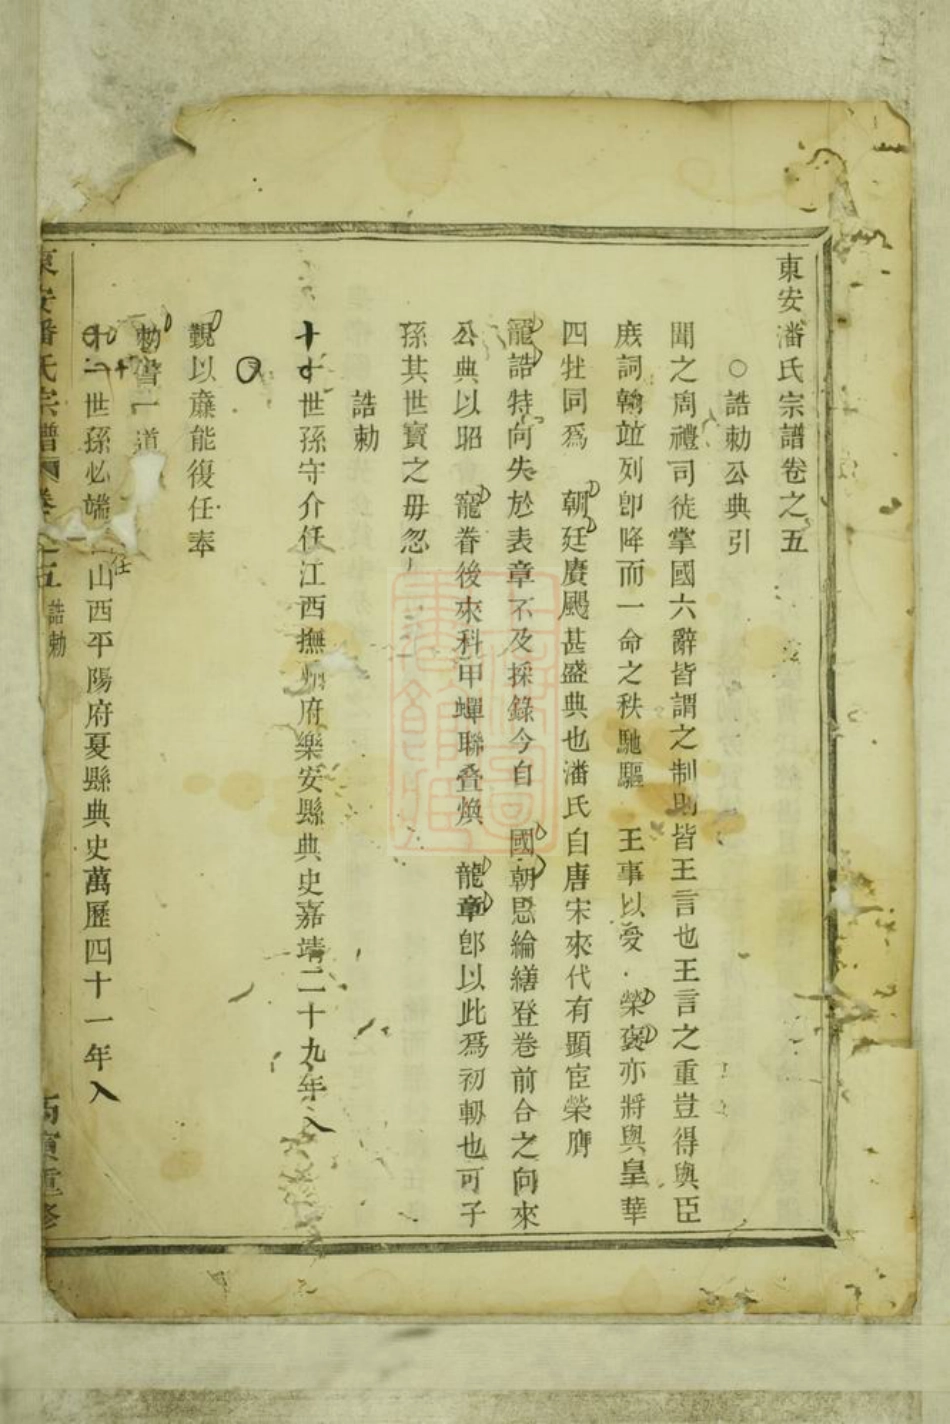 東安潘氏宗譜卷之五
○誥勅公典引
聞之周禮司徒掌國六辭皆謂之制則皆王言也王言之重豈得與臣
庶詞翰竝列卽降而一命之秩馳驅 王事以受 榮褒亦將與皇華
四牡同爲 朝廷賡颺甚盛典也潘氏自唐宋來代有顯宦榮膺
寵誥特向失於表章不及採錄今自 國朝恩綸繕登卷前合之向來
公典以昭 寵眷後來科甲蟬聯叠煥 龍章卽以此爲初軔也可子
孫其世寶之毋忽
誥勅
世孫守介任江西撫州府樂安縣典史嘉靖二十九年入
覲以廉能復任奉
勅書一道
世孫必端任山西平陽府夏縣典史萬歷四十一年入
東安潘氏宗譜 卷之五 誥勅